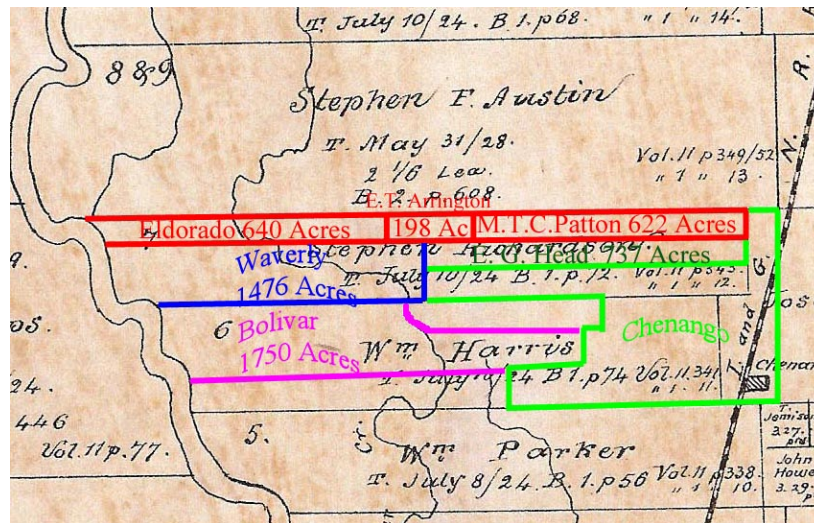 T. July 10/24. B 1. p 68. " 1 " 14.
8 & 9
Stephen F. Austin
T. May 31/28.
2 1/6 Lea.
B 2. p. 608.
Vol. 11 p 349/52
" 1 " 13.
N. R.
E.T. Arrington
Eldorado 640 Acres
198 Ac
M.T.C.Patton 622 Acres
Stephen Richardson.
E. G. Head 737 Acres
T. July 10/24 B 1. p. 12. Vol. 11 p 345.
" 1 " 12.
Waverly
1476 Acres
6
Bolivar
1750 Acres
Chenango
Wm Harris
T. July 24 B 1. p 74 Vol. 11. 341
" 1 " 11.
T. and G.
Chenan
24.
446
Vol. 11 p. 77.
5.
Cr.
Wm Parker
T. July 8/24. B. 1. p 56 Vol. 11 p 338.
" 1 " 10.
T.
Jamison
3.27.
John
Howe
3.29.